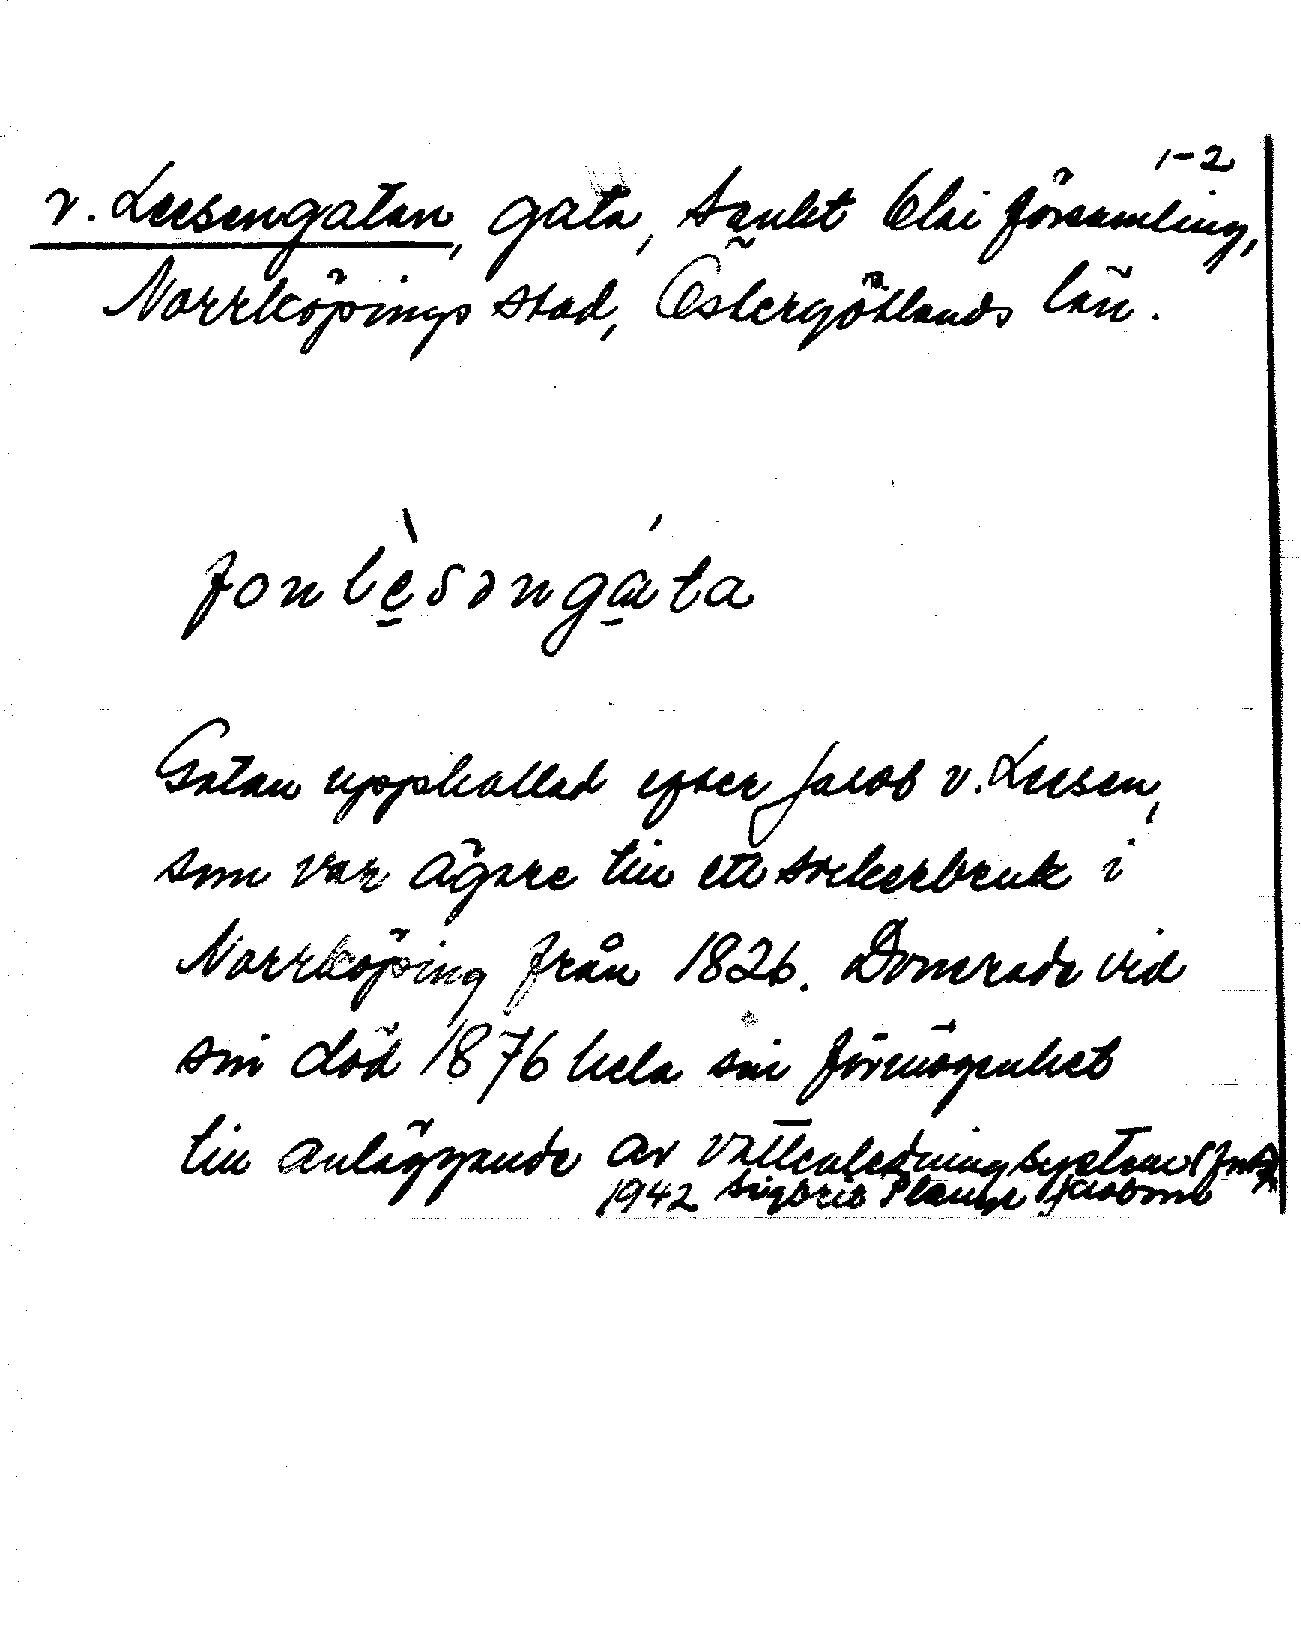 1-2
v. Leesengatan, gata, Sankt Olai församling,
Norrköpings stad, Östergötlands län.
fonlèsəngáta
Gatan uppkallad efter Jacob v. Leesen,
som var ägare till ett sockerbruk i
Norrköping från 1826. Donerade vid
sin död 1876 hela sin förmögenhet
till anläggande av vattenledningssystem
1942 Sigbrit Plænge Jacobson